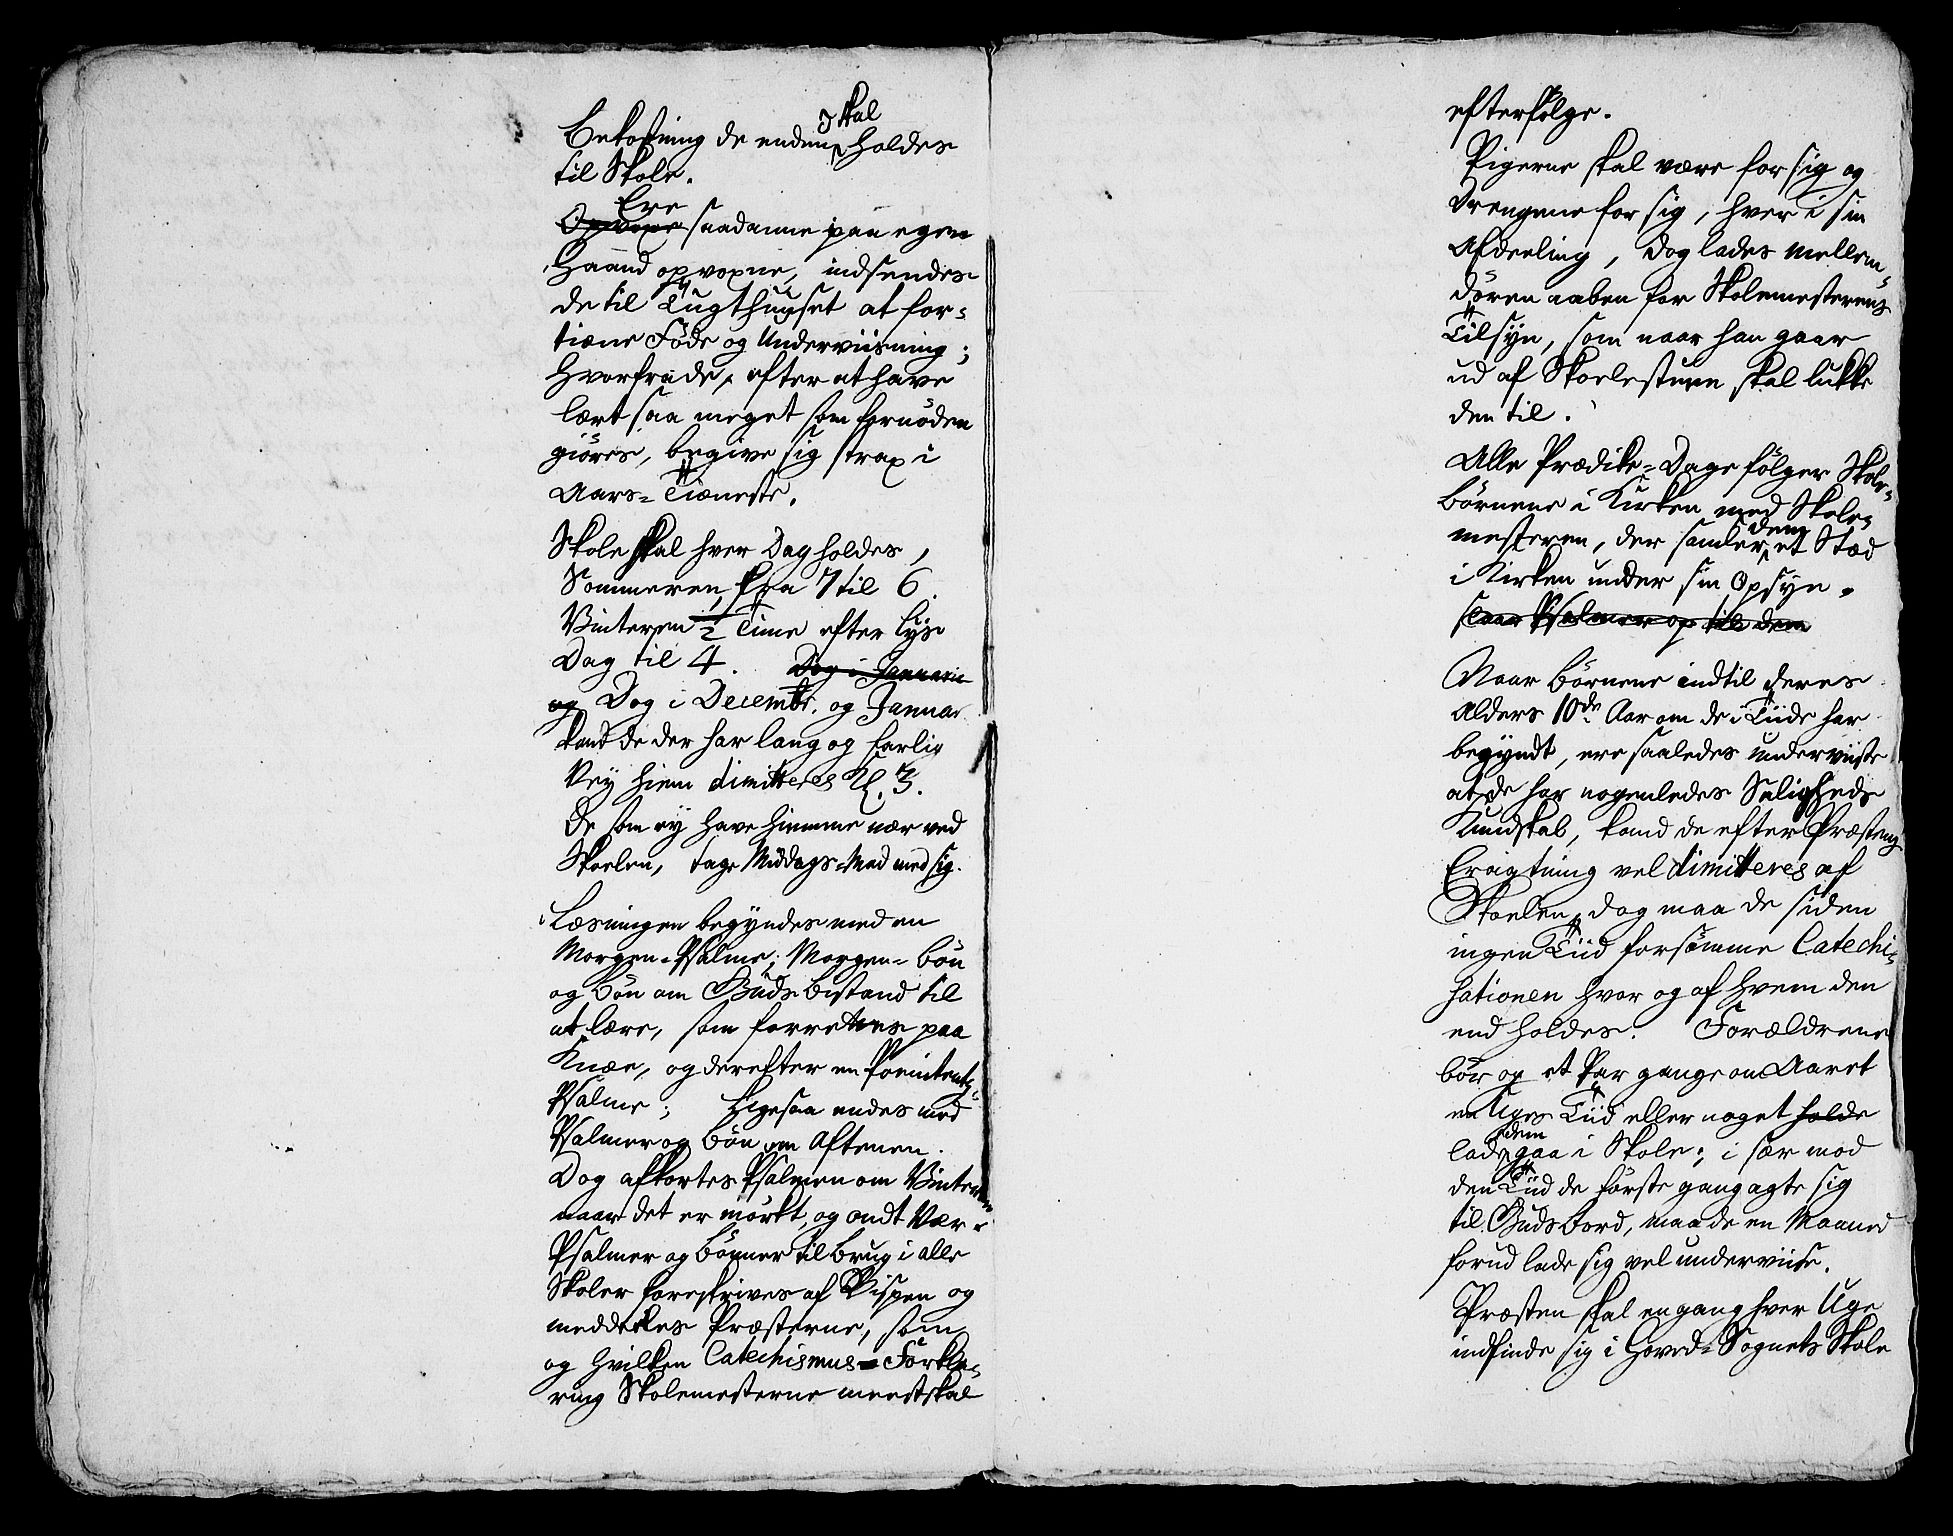 Bekostning de enden skal holdes
til Skole.
Ere
Opvoxe saadanne paa egen
Haand opvoxne, indsendes
de til Tugthuuset at for-
tiæne Föde og Underviisning;
hvorfra de, efter at have
lært saa meget som fornöden
giöres, begive sig strax i
Aars-Tiæneste.
Skole skal hver Dag holdes,
Sommeren fra 7 til 6.
Vinteren ½ Time efter lys
Dag til 4. Dog i Januario
og Dog i Decembr. og Januar
kand de der har lang og farlig
Vey hiem dimitteres Kl. 3.
De som ey have hiemme nær ved
Skoelen, tage Middags-Mad med sig.
Læsningen begyndes med en
Morgen-Psalme; Morgen-bön
og bön om Guds bistand til
at lære, som forrettes paa
Knæe, og derefter en Poenitentz-
Psalme; ligesaa endes med
Psalmer og bön om Aftenen.
Dog afkortes Psalmen om Vinteren
naar det er mörkt, og ondt Vær.
Psalmer og bönner til brug i alle
Skoler foreskrives af Bispen og
meddeeles Præsterne, som
og hvilken Catechismus-Forkla-
ring Skolemesterne meest skal
efterfölge.
Pigerne skal være for sig og
Drengene for sig, hver i sin
Afdeeling, Dog lades mellem-
dören aaben for Skolemesterens
Tilsyn, som naar han gaar
ud af Skoelestuen skal lukke
den til.
Alle Prædike-Dage fölger Skole-
börnene i Kirken med Skole-
mesteren, der samler dem et Stæd
i Kirken under sin Opsyn.
slaar Psalmer op til dem
Naar börnene indtil deres
Alders 10de Aar om de i Tiide har
begyndt, ere saaledes underviiste
at de har nogenledes Saligheds
Kundskab, kand de efter Præstens
Eragtning vel dimitteres af
Skoelen, dog maa de siden
ingen Tiid forsömme Catechi-
sationen hvor og af hvem den
end holdes. Forældrene
bör og et Par gange om Aaret
en Uges Tiid eller noget holde
lade dem gaa i Skole; i sær mod
den Tiid de förste gang agte sig
til Guds bord, maa de en Maaned
forud lade sig vel underviise.
Præsten skal en gang hver Uge
indfinde sig i Hoved-Sognets Skole